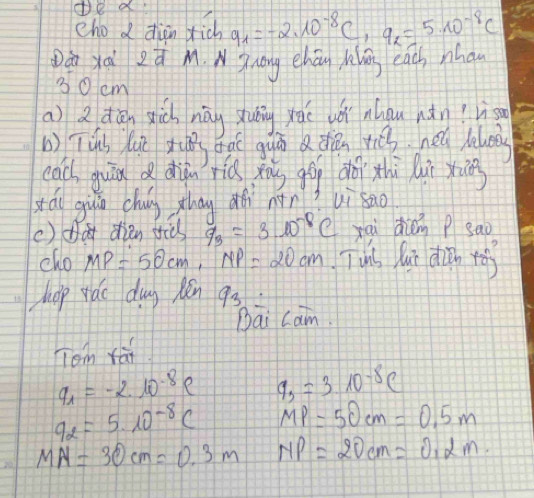 Đề 2.
Cho 2 điện tích q₁ = -2.10⁻⁸C, q₂ = 5.10⁻⁸C
Đặt tại 2đ M. N trong chân không cách nhau
30 cm
a) 2 điện tích này tương tác với nhau ntn? Vì sao
b) Tính lực tương tác giữa 2 điện tích. nếu khoảng
cách giữa 2 điện tích tăng gấp đôi thì lực tương
tác giữa chúng thay đổi ntn? Vì sao.
c) Đặt điện tích q₃ = 3.10⁻⁸C tại điểm P sao
cho MP = 50cm, NP = 20cm. Tính lực điện tổng
hợp tác dụng lên q₃.
Bài làm.
Tóm tắt.
q₁ = -2.10⁻⁸C q₃ = 3.10⁻⁸C
q₂ = 5.10⁻⁸C MP = 50cm = 0,5m
MN = 30cm = 0.3m NP = 20cm = 0,2m.